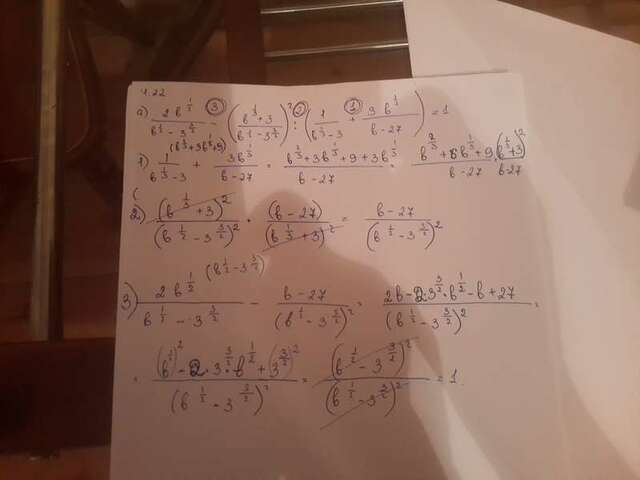 4.22
a) 2b^{1/2} / (b^{1/2} - 3^{3/2}) ③ - ((b^{1/3} + 3) / (b^{1/2} - 3^{3/2}))^2 ② : (1 / (b^{1/3} - 3) ① + 3b^{1/3} / (b - 27)) = 1
(b^{2/3} + 3b^{1/3} + 9)
1) 1 / (b^{1/3} - 3) + 3b^{1/3} / (b - 27) = (b^{2/3} + 3b^{1/3} + 9 + 3b^{1/3}) / (b - 27) = (b^{2/3} + 6b^{1/3} + 9) / (b - 27) = (b^{1/3} + 3)^2 / (b - 27)
2) (b^{1/3} + 3)^2 / (b^{1/2} - 3^{3/2})^2 · (b - 27) / (b^{1/3} + 3)^2 = (b - 27) / (b^{1/2} - 3^{3/2})^2
(b^{1/2} - 3^{3/2})
3) 2b^{1/2} / (b^{1/2} - 3^{3/2}) - (b - 27) / (b^{1/2} - 3^{3/2})^2 = (2b - 2·3^{3/2}·b^{1/2} - b + 27) / (b^{1/2} - 3^{3/2})^2 =
= ((b^{1/2})^2 - 2·3^{3/2}·b^{1/2} + (3^{3/2})^2) / (b^{1/2} - 3^{3/2})^2 = (b^{1/2} - 3^{3/2})^2 / (b^{1/2} - 3^{3/2})^2 = 1.